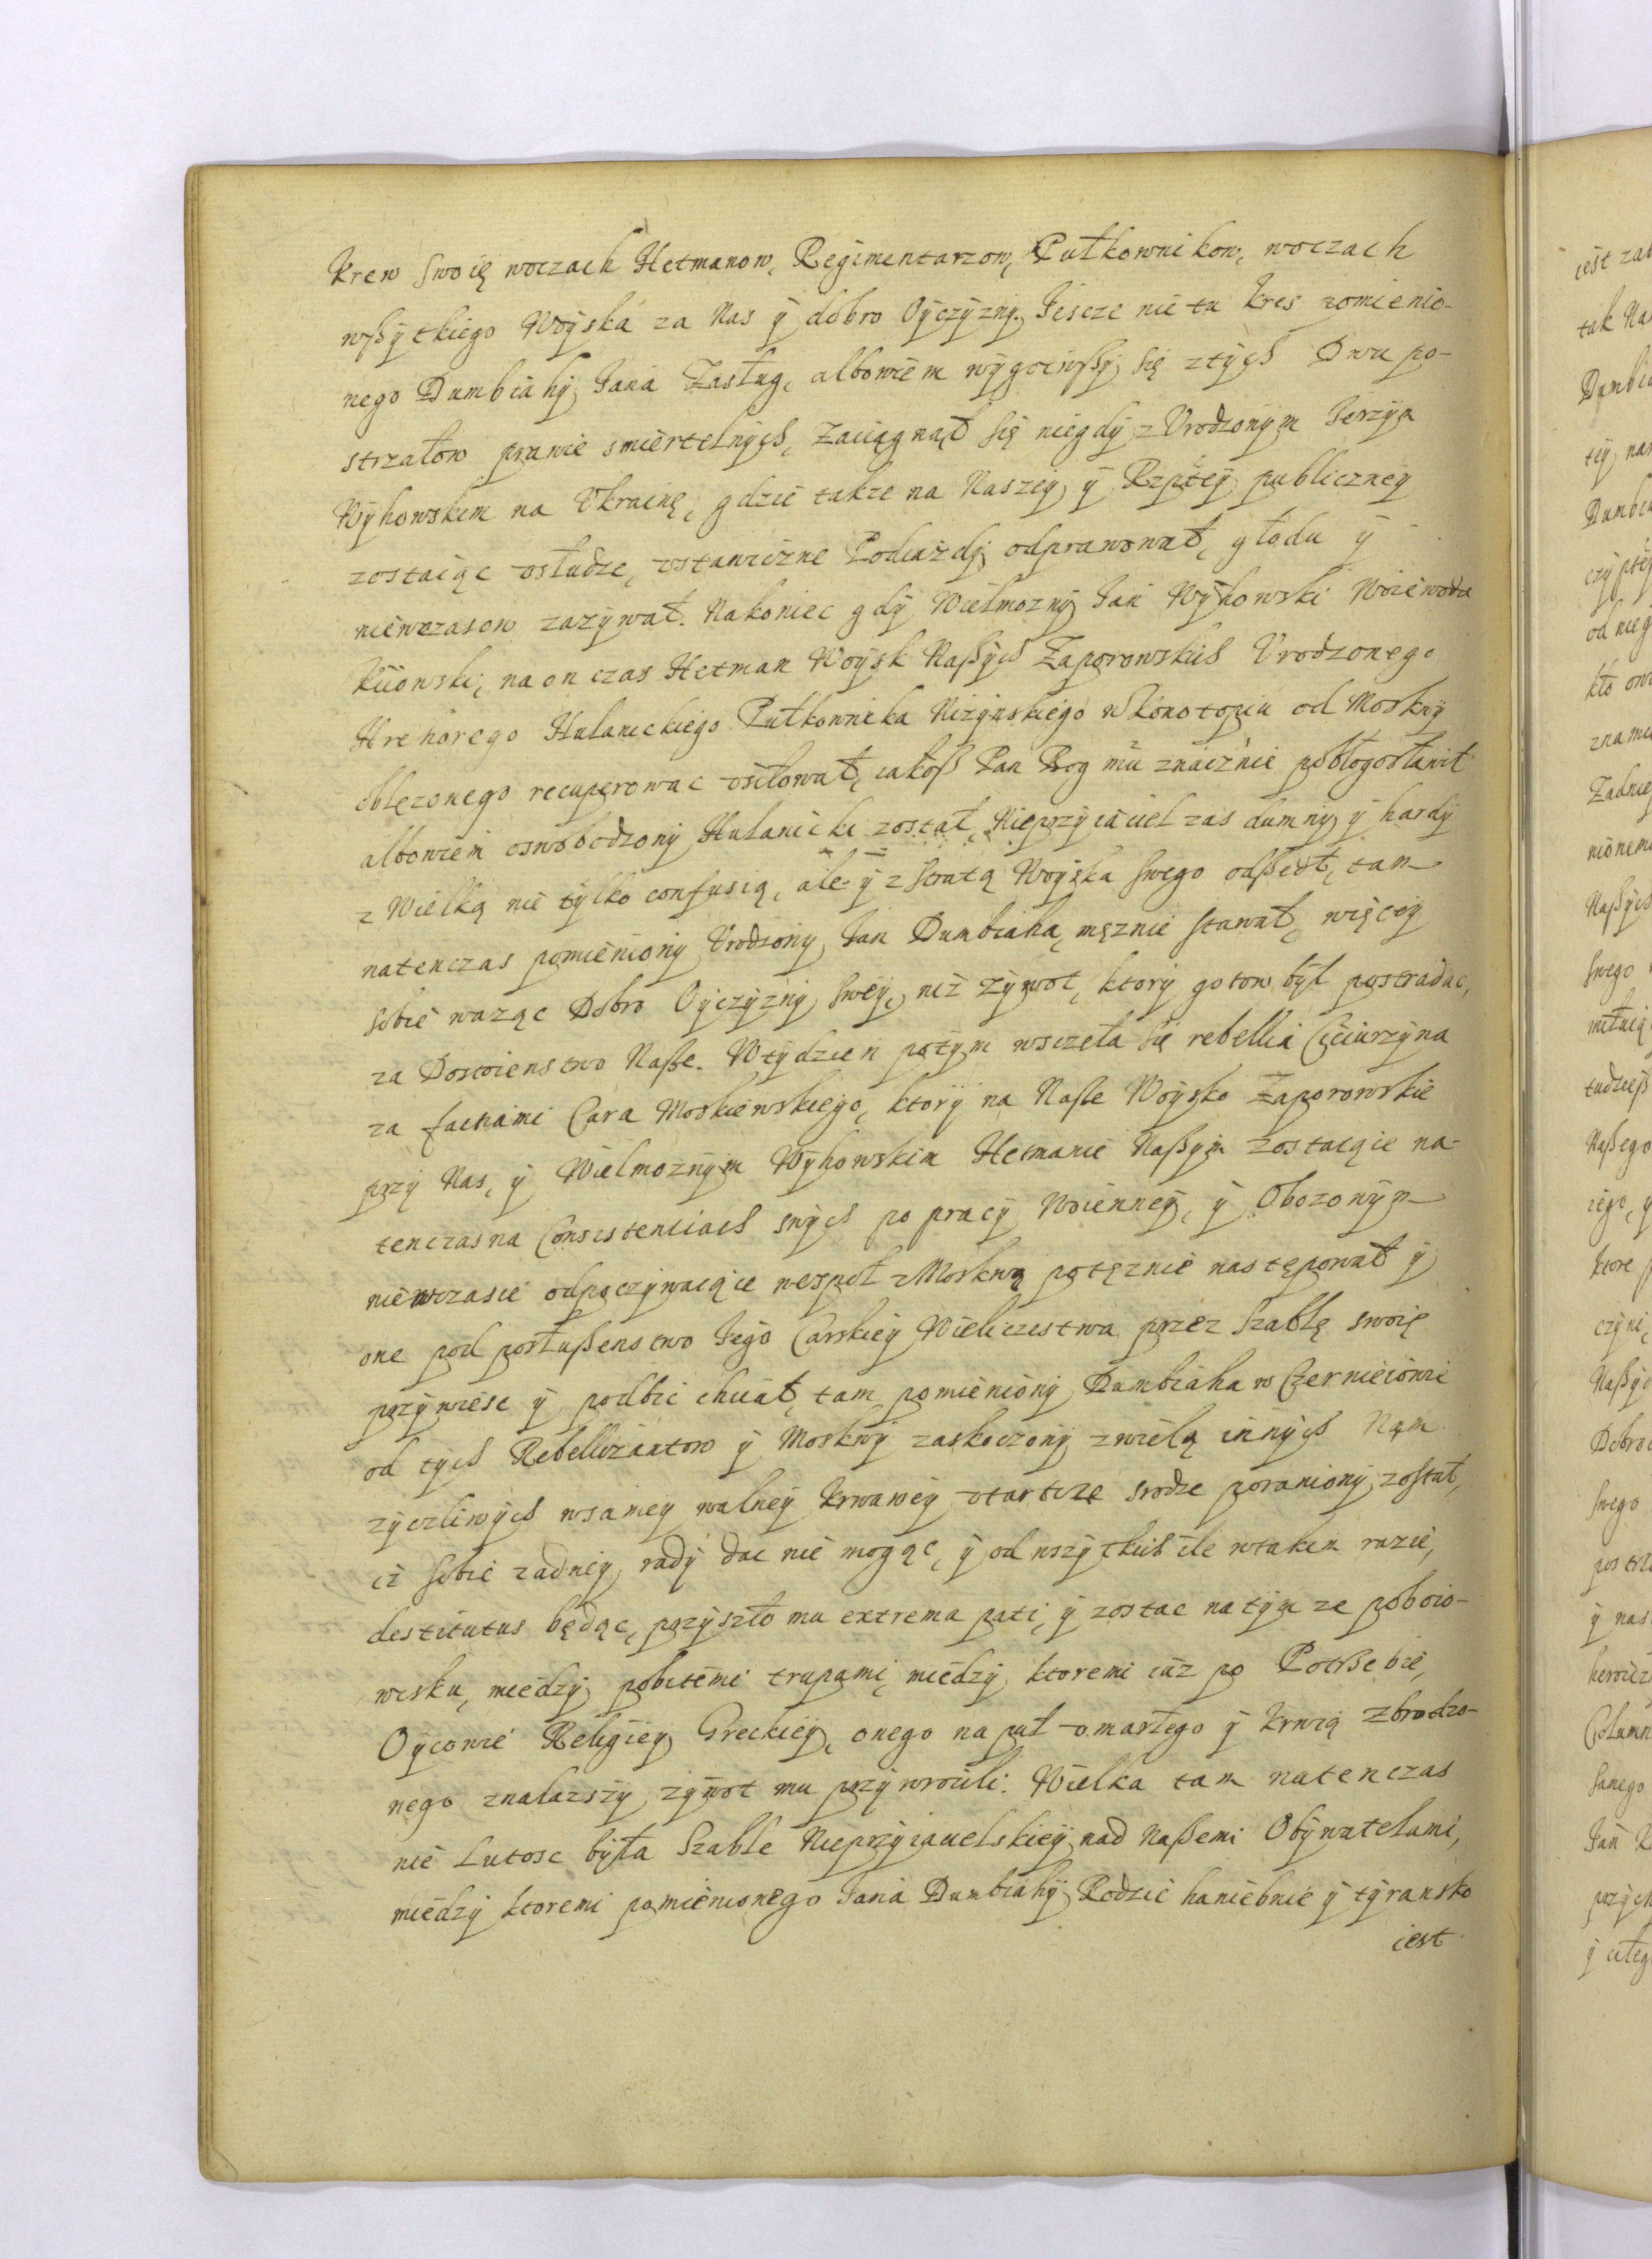 Krew swoię woczach Hetmanow, Regimentarzow, Pułkownikow, woczach
wßÿtkiego Woÿska za Nas ÿ dobro Oÿczÿznÿ. Jescze nie tu kres zomienio-
nego Dumbiahÿ Jana Zasług, albowiem wÿgoiwßÿ się ztÿch Dwu po-
strzałow prawie smiertelnÿch, zaciągnął się niegdÿ z Vrodzonÿm Jerzÿm
Wÿhowskim na Vkrainę, gdzie takze na Naszeÿ ÿ Rzptey publiczneÿ
zostaiąc vsłudze, vstawiczne Podiazdÿ odprawował, głodu ÿ
niewczasow zazÿwał. Nakoniec gdÿ Wielmoznÿ Jan Wÿhowski Woiewoda
Kiiowski, na on czas Hetman Woÿsk Naßÿch Zaporowskich Vrodzonego
Hrehorego Hulanickiego Pułkownika Niżÿnskiego w Konotopiu od Moskwÿ
oblęzonego recuperowac vsiłował, iakoß Pan Bog mu znacznie pobłogosławił
albowiem oswobodzonÿ Hulanicki został, Nieprzÿiaciel zas dumnÿ ÿ hardÿ
z Wielką nie tÿlko confusią, ale ÿ z stratą Woÿska swego odßedł, tam
natenczas pomienionÿ Vrodzonÿ Jan Dumbiaha, męznie stawał, więceÿ
sobie waząc Dobro Oÿczÿznÿ sweÿ, niż zÿwot, ktorÿ gotow bÿł postradac,
za Dostoienstwo Naße. Wtÿdzien potÿm wsczeła się rebellia Cieciurzÿna
za fackami Cara Moskiewskiego, ktorÿ na Naße Woÿsko Zaporowskie
przÿ Nas, ÿ Wielmoznÿm Wÿhowskim Hetmanie Naßÿm zostaiące na-
tenczas na Consistentiach swÿch po pracÿ Woienneÿ, ÿ Obozowÿm
niewczasie odpoczÿwaiące wespoł z Moskwą potęznie następował ÿ
one pod posłußenstwo Jego Carskieÿ Wieliczestwa przez Szablę swoię
przÿwiesc ÿ podbic chciał, tam pomienionÿ Dumbiaha w Czerniecowie
od tÿch Rebellizantow ÿ Moskwÿ zaskoczonÿ zwielą innÿch Nam
zÿczliwÿch wsameÿ walneÿ krwaweÿ vtarczce srodze poranionÿ został,
iż sobie zadneÿ radÿ dac nie mogąc, ÿ od wszÿtkich ile wtakim razie,
destitutus będąc, przÿszło mu extrema pati, ÿ zostac na tÿm ze poboio-
wisku, miedzÿ pobitemi trupami, miedzÿ ktoremi iuż po Potrzebie,
Oÿcowie Religieÿ Greckieÿ, onego na puł vmarłego ÿ krwią zbrodzo-
nego znalazszÿ zÿwot mu przÿwrocili. Wielka tam natenczas
nie Lutosc bÿła Szable Nieprzÿiacielskieÿ nad Naßemi Obÿwatelami,
miedzÿ ktoremi pomienionego Jana Dumbiahÿ Rodzic haniebnie ÿ tÿransko
iest